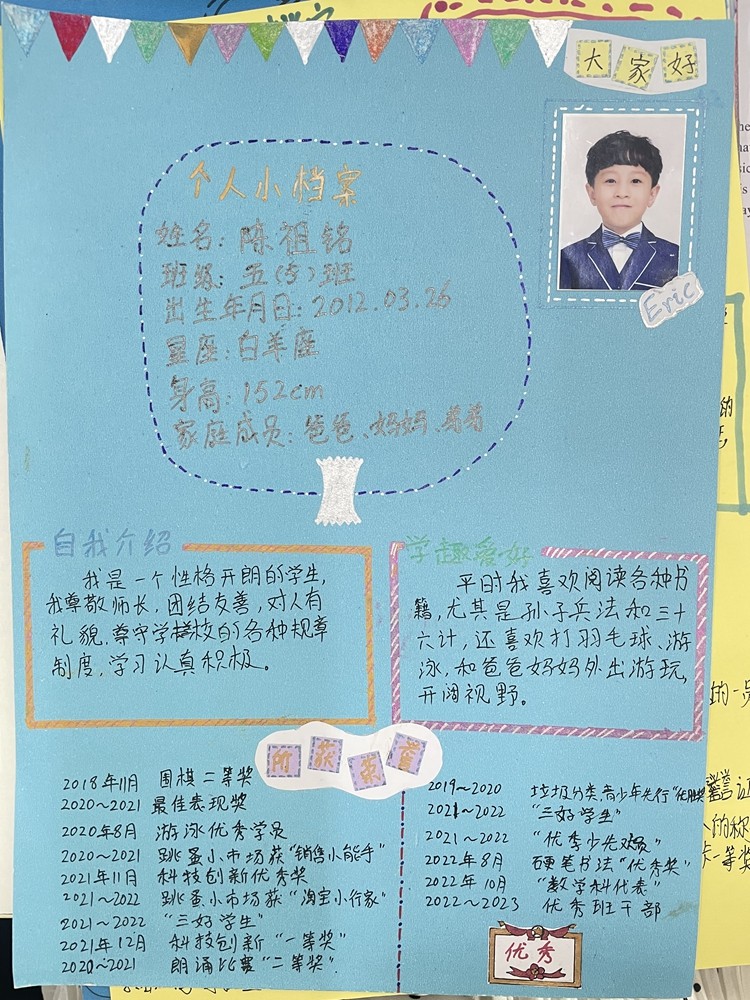 大家好
个人小档案
姓名：陈祖铭
班级：五（5）班
出生年月日：2012.03.26
星座：白羊座
身高：152cm
家庭成员：爸爸、妈妈、爷爷
Eric
自我介绍
我是一个性格开朗的学生，
我尊敬师长，团结友善，对人有
礼貌，尊守学校的各种规章
制度，学习认真积极。
学趣爱好
平时我喜欢阅读各种书
籍，尤其是孙子兵法和三十
六计，还喜欢打羽毛球、游
泳，和爸爸妈妈外出游玩，
开阔视野。
所获荣誉
2018年11月 围棋二等奖
2020~2021 最佳表现奖
2020年8月 游泳优秀学员
2020~2021 跳蚤小市场获"销售小能手"
2021年11月 科技创新优秀奖
2021~2022 跳蚤小市场获"淘宝小行家"
2021~2022 "三好学生"
2021年12月 科技创新"一等奖"
2020~2021 朗诵比赛"二等奖"
2019~2020 垃圾分类，青少年先行"优胜奖"
2021~2022 "三好学生"
2021~2022 "优秀少先队员"
2022年8月 硬笔书法"优秀奖"
2022年10月 "数学科代表"
2022~2023 优秀班干部
优秀